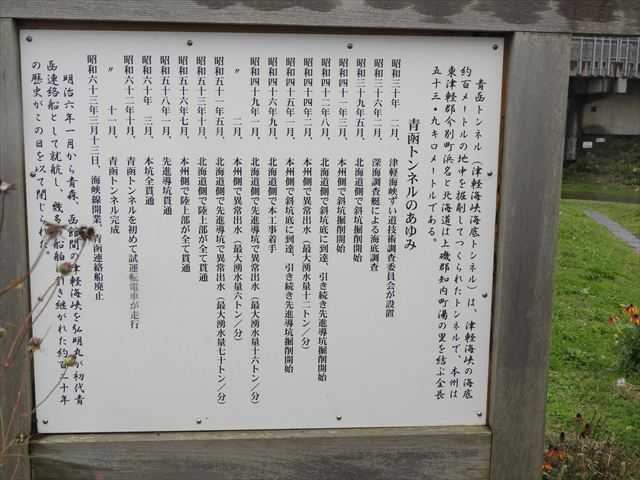 青函トンネル（津軽海峡海底トンネル）は、津軽海峡の海底
約百メートルの地中を掘削してつくられたトンネルで、本州は
東津軽郡今別町浜名と北海道は上磯郡知内町湯の里を結ぶ全長
五十三・九キロメートルである。
青函トンネルのあゆみ
昭和三十年　二月、　津軽海峡ずい道技術調査委員会が設置
昭和三十六年　二月、　深海調査艇による海底調査
昭和三十九年五月、　北海道側で斜坑掘削開始
昭和四十一年三月、　本州側で斜坑掘削開始
昭和四十二年八月、　北海道側で斜坑底に到達、引き続き先進導坑掘削開始
昭和四十四年二月、　本州側で異常出水（最大湧水量十二トン／分）
昭和四十五年一月、　本州側で斜坑底に到達、引き続き先進導坑掘削開始
昭和四十六年九月、　北海道側で本工事着手
昭和四十九年一月、　北海道側で先進導坑で異常出水（最大湧水量十六トン／分）
〃　二月、　本州側で異常出水（最大湧水量六トン／分）
昭和五十一年五月、　北海道側で先進導坑で異常出水（最大湧水量七十トン／分）
昭和五十三年十月、　北海道側で陸上部が全て貫通
昭和五十六年七月、　本州側で陸上部が全て貫通
昭和五十八年一月、　先進導坑貫通
昭和六十年　三月、　本坑全貫通
昭和六十二年十月、　青函トンネルを初めて試運転電車が走行
〃　十一月、　青函トンネル完成
昭和六十三年三月十三日、海峡線開業、青函連絡船廃止
明治六年一月から青森、函館間の津軽海峡を弘明丸が初代青
函連絡船として就航し、幾多の船舶に引き継がれた約百二十年
の歴史がこの日を以て閉じられた。